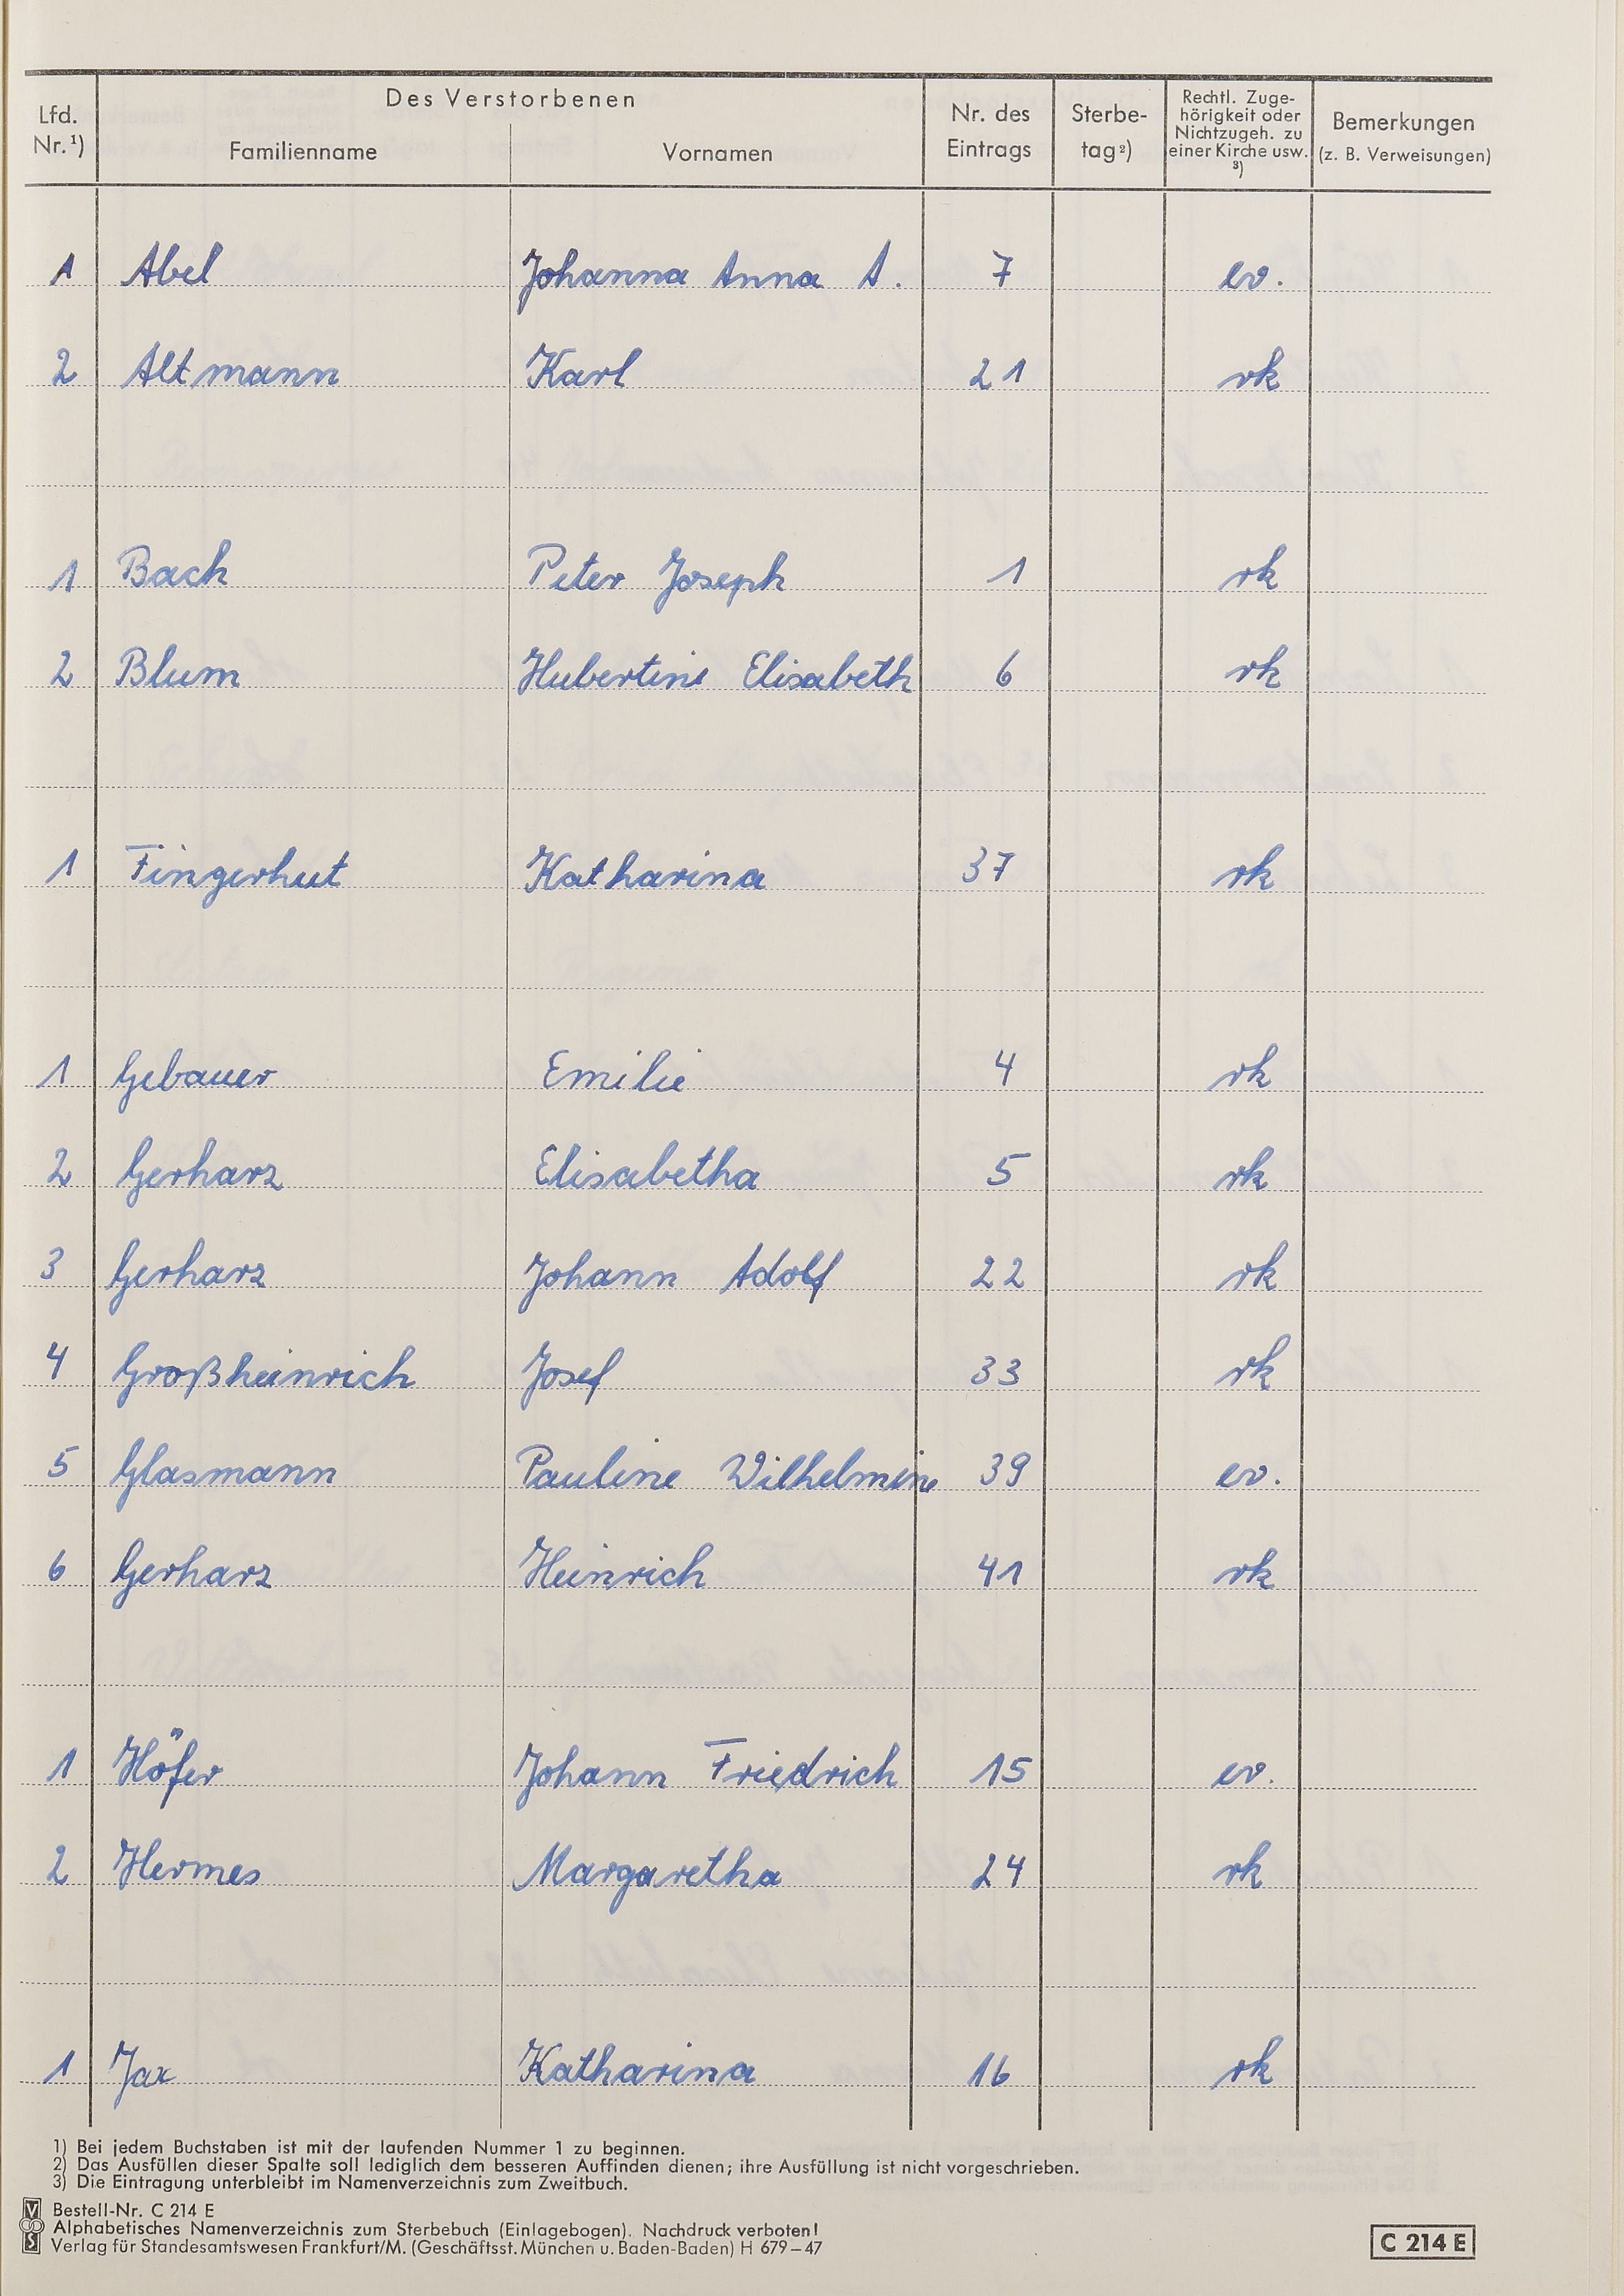 Des Verstorbenen
Lfd. Nr.¹) Familienname Vornamen Nr. des Eintrags Sterbe-tag²) Rechtl. Zuge-hörigkeit oder Nichtzugeh. zu einer Kirche usw. ³) Bemerkungen (z. B. Verweisungen)
1 Abel Johanna Anna A. 7 ev.
2 Altmann Karl 21 rk
1 Bach Peter Joseph 1 rk
2 Blum Hubertine Elisabeth 6 rk
1 Fingerhut Katharina 37 rk
1 Gebauer Emilie 4 rk
2 Gerharz Elisabetha 5 rk
3 Gerharz Johann Adolf 22 rk
4 Großheinrich Josef 33 rk
5 Glasmann Pauline Wilhelmine 39 ev.
6 Gerharz Heinrich 41 rk
1 Höfer Johann Friedrich 15 ev.
2 Hermes Margaretha 24 rk
1 Jax Katharina 16 rk
1) Bei jedem Buchstaben ist mit der laufenden Nummer 1 zu beginnen.
2) Das Ausfüllen dieser Spalte soll lediglich dem besseren Auffinden dienen; ihre Ausfüllung ist nicht vorgeschrieben.
3) Die Eintragung unterbleibt im Namenverzeichnis zum Zweitbuch.
Bestell-Nr. C 214 E
Alphabetisches Namenverzeichnis zum Sterbebuch (Einlagebogen). Nachdruck verboten!
Verlag für Standesamtswesen Frankfurt/M. (Geschäftsst. München u. Baden-Baden) H 679–47
C 214 E